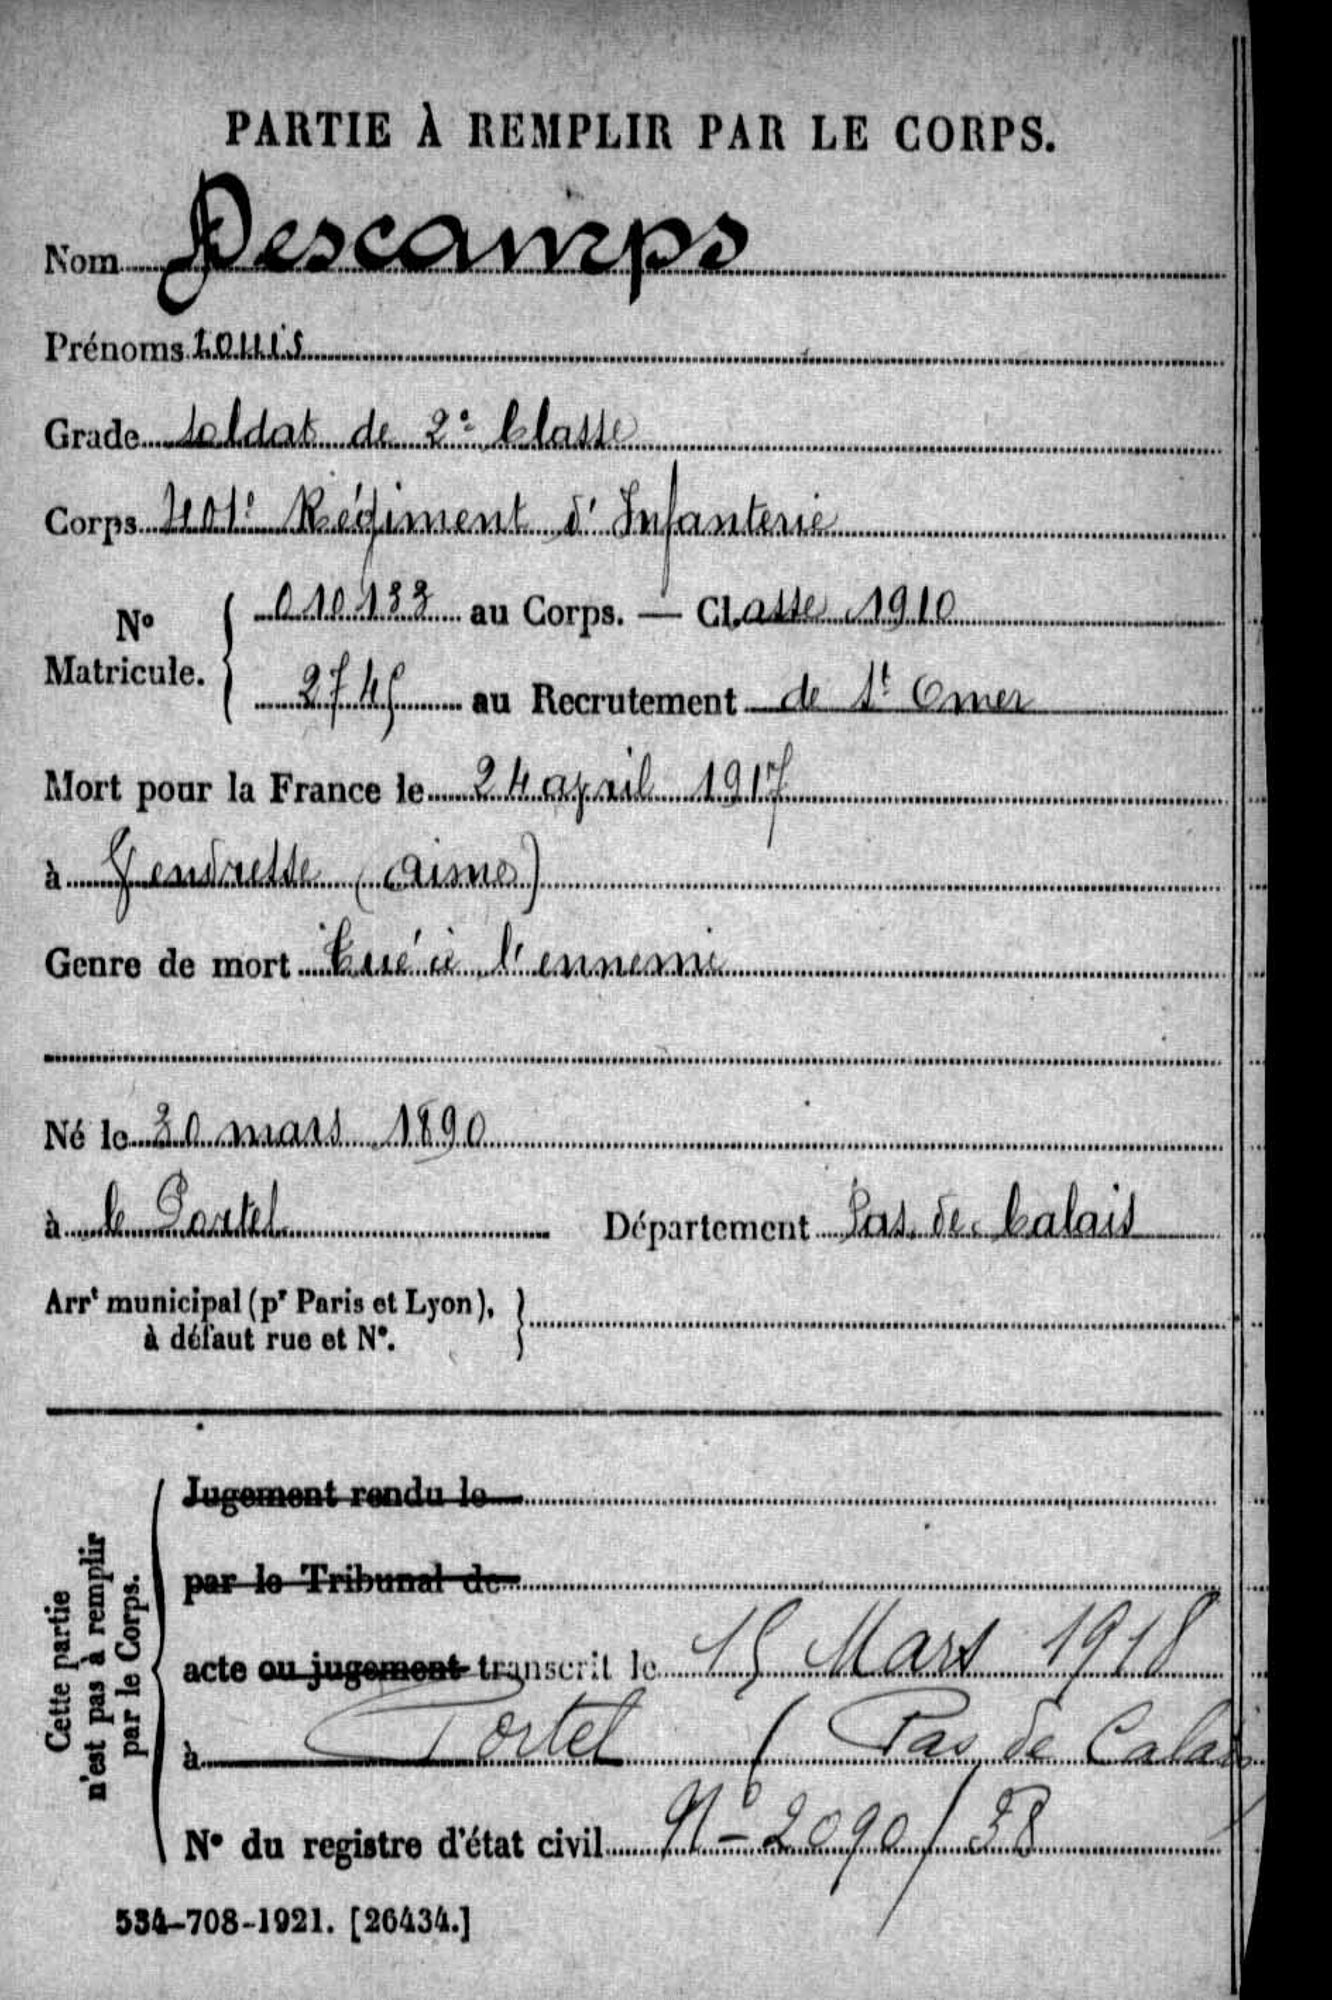 PARTIE À REMPLIR PAR LE CORPS.
Nom Descamps
Prénoms Louis
Grade soldat de 2e Classe
Corps 401e Régiment d'Infanterie
No
Matricule.
010133 au Corps. — Classe 1910
2745 au Recrutement de St Omer
Mort pour la France le 24 april 1917
à Vendresse (aisne)
Genre de mort tué à l'ennemi
Né le 30 mars 1890
à le Portel Département Pas de Calais
Arrt municipal (pr Paris et Lyon),
à défaut rue et No.
Cette partie
n'est pas à remplir
par le Corps.
Jugement rendu le
par le Tribunal de
acte ou jugement transcrit le 15 Mars 1918
à Portel (Pas de Calais
No du registre d'état civil No 2090/38
534-708-1921. [26434.]